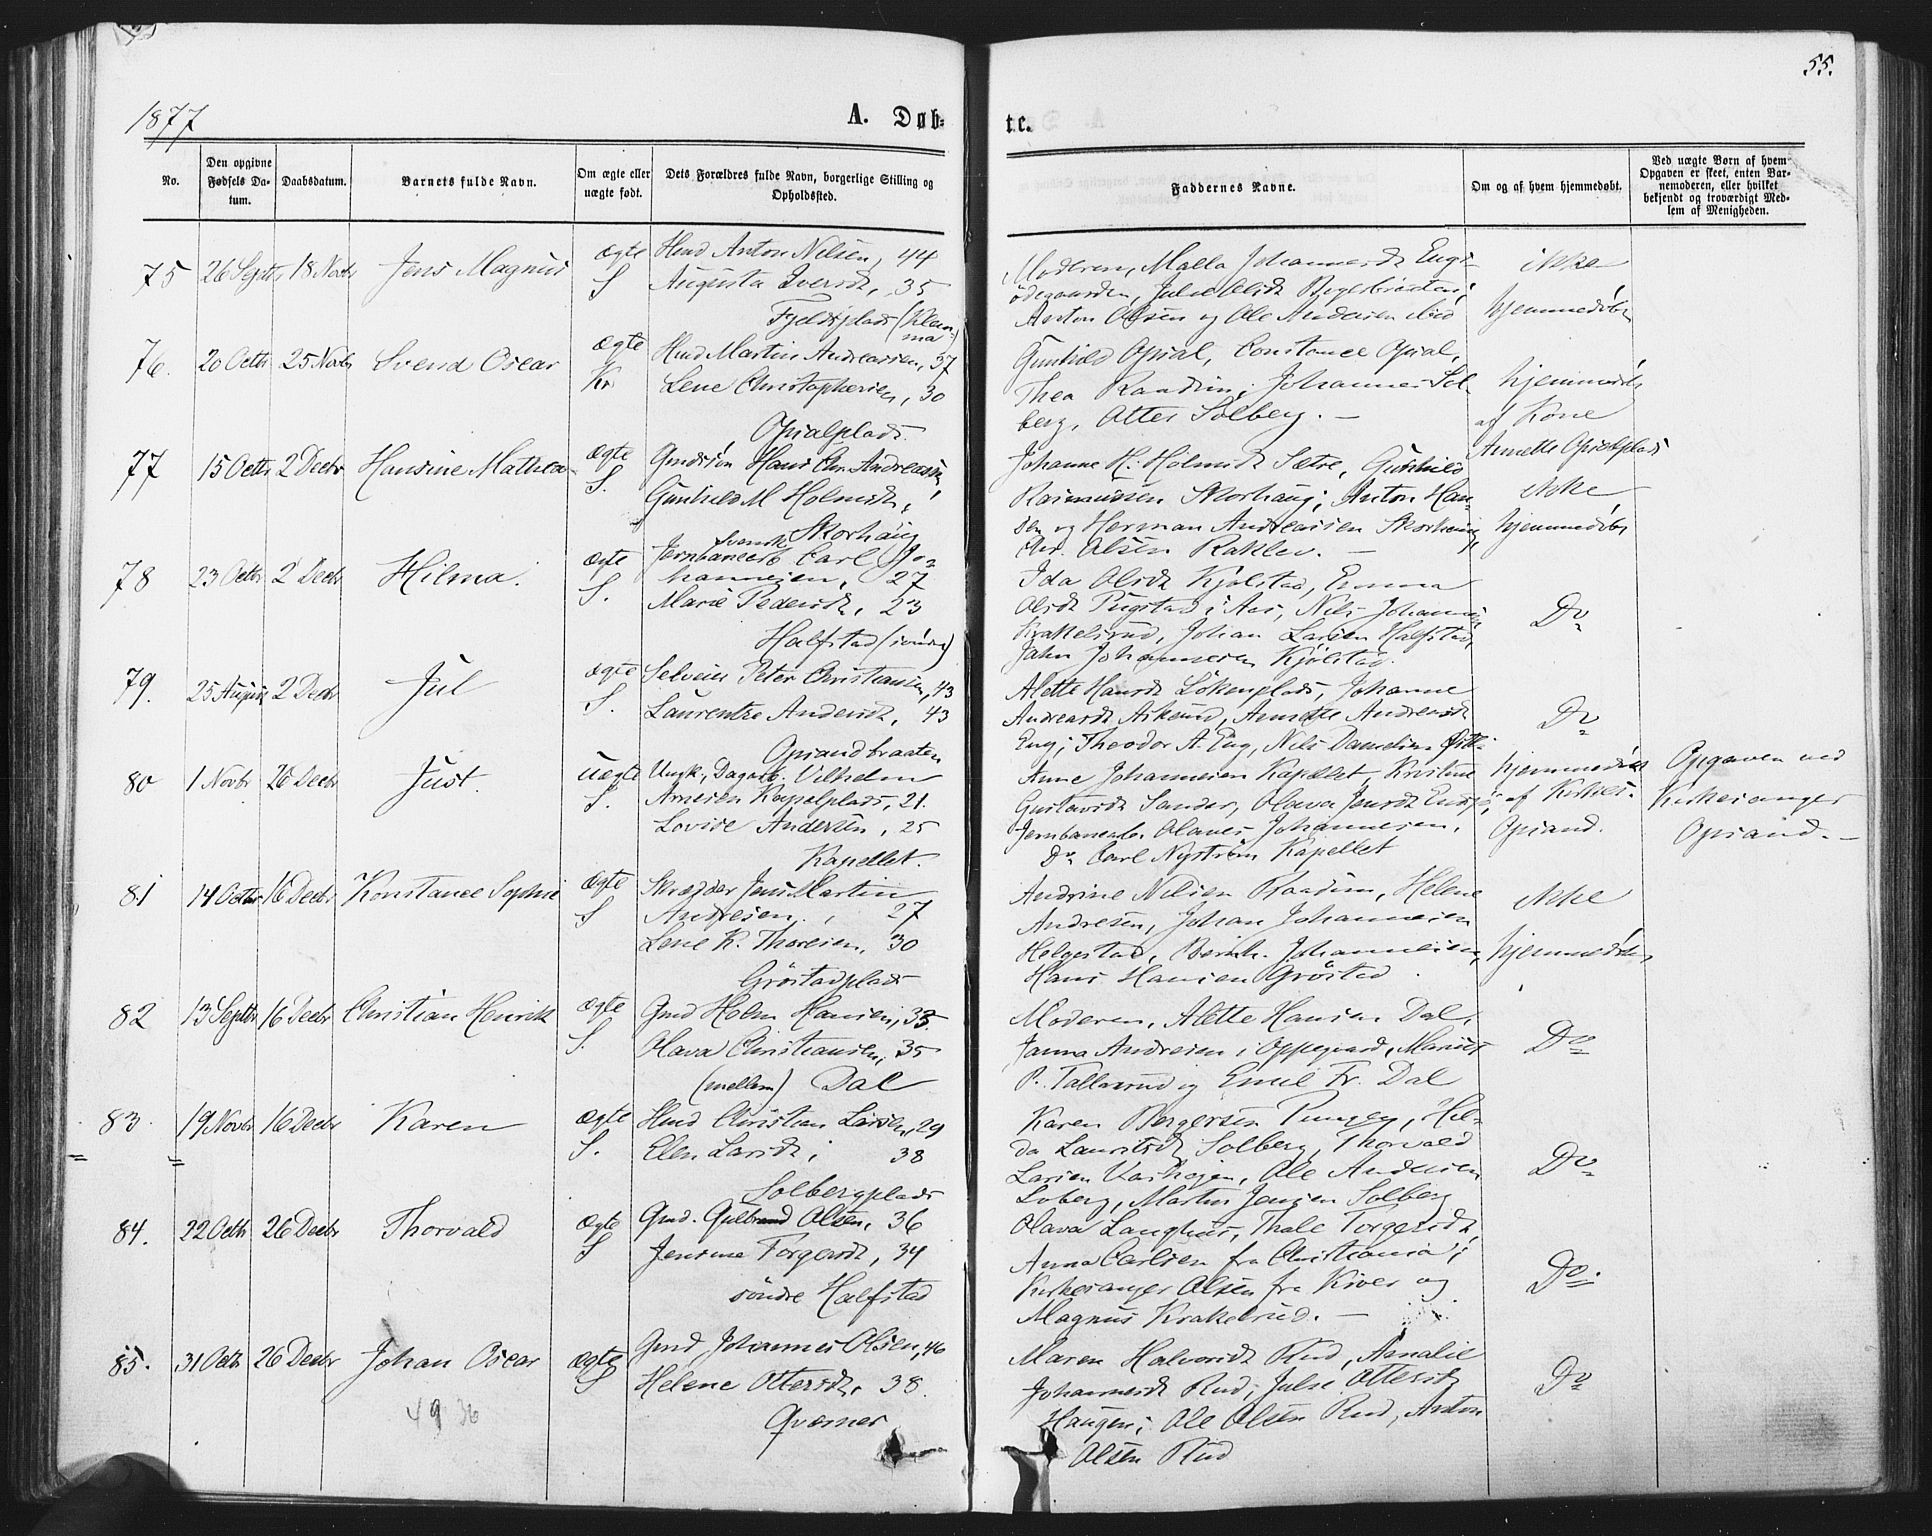 55.
1877
A. Døb-
te.
No.
Den opgivne Fødsels Da-
tum.
Daabsdatum.
Barnets fulde Navn.
Om ægte eller
uægte født.
Dets Forældres fulde Navn, borgerlige Stilling og
Opholdssted.
Faddernes Navne.
Om og af hvem hjemmedøbt.
Ved uægte Børn af hvem
Opgaven er skeet, enten Bar-
nemoderen, eller hvilket
bekjendt og troværdigt Med-
lem af Menigheden.
75 26 Septbr 18 Novbr Jens Magnus
ægte
S
Hmd Anton Nilsen, 44
Augusta Iversdt, 35
Fjeldsplads (Klem-
ma)
Moderen, Malla Johannesdt Engs-
ødegaarden, Julie Olsdt
Anton Olsen og Ole Andersen
ikke
hjemmedøbt
76. 20 Octbr 25 Novbr Svend Oscar
ægte
Kr
Hmd Martin Andreassen, 37
Lene Christophersen, 30
Opsalplads.
Gunhild Opsal, Constance Opsal,
Thea Raadim; Johannes Sol-
berg, Otter Solberg. —
hjemmedøbt
af Kone
Annette Opsalplads
77 15 Octbr 2 Decbr Hansine Mathea
ægte
S.
Gmdsøn Hans Chr. Andreassen,
Gunhild M Holmsdt,
Skorhaug
Johanne H. Holmsdt Sætre, Gunhild
Rasmussen Skorhaug; Anton Han-
sen og Herman Andreassen Skorhaug,
Chr. Olsen Raklev. —
ikke
hjemmedøbt
78 23 Octbr 2 Decbr Hilma.
ægte
S.
svensk
Jernbanearb Carl Jo-
hannesen, 27
Marie Pedersdt, 23
Halfstad (søndre)
Ida Olsdt Kjølstad, Emma
Olsdt Pugstad i Aas, Nils Johannes
Krakelsrud, Johan Larsen Halfstad,
John Johannesen Kjølstad.
Do
79. 25 August 2 Decbr Jul
ægte
S.
Selveier Peter Christiansen, 43
Laurentze Andersdt, 43
Opsandbraaten
Alette Hansdt Løkenplads, Johanne
Andreasdt Askerud, Annette Andreasdt
Eng; Theodor A. Eng, Nils Danielsen
Do
80 1 Novbr 26 Decbr Just.
uægte
S.
Ungk., Dagarb. Vilhelm
Arnesen Kapelplads, 21.
Lovise Andersen, 25
Kapellet.
Anne Johannesen Kapellet, Kristine
Gustavsdt Sander, Olava Jensdt Endsjø,
Jernbanearb. Olaves Johannesen,
Do Carl Nystrøm Kapellet
hjemmedøbt
af Kirkes.
Opsand.
Opgaven ved
Kirkesanger
Opsand. —
81 14 Octbr 16 Decbr Konstance Sophie
ægte
S
Skrædder Jens Martin
Andresen, 27
Lene K. Thoresen, 30
Grøstadplads
Andrine Nilsen Raadim, Helene
Andresen, Johan Johannesen
Helgestad, Bernh. Johannesen,
Hans Hansen Grøstad
ikke
hjemmedøbt
82 13 Septbr 16 Decbr Christian Henrik
ægte
S.
Gmd Holm Hansen, 33.
Olava Christiansen, 35
(mellem) Dal
Moderen, Alette Hansen Dal,
Janna Andresen i Oppegaard, Marius
P. Tallaksrud og Emil Fr. Dal
Do
83. 19 Novbr 16 Decbr Karen
ægte
S.
Hmd Christian Larsen, 29
Elen Larsdt, 38
Solbergplads
Karen Bergersen Pungen, Hil-
da Lauritsdt Solberg, Thorvald
Larsen Ole Andersen
Loberg, Martin Jensen Solberg
Do
84. 22 Octbr 26 Decbr Thorvald
ægte
S
Gmd. Gulbrand Olsen, 36
Jensine Torgersdt, 34
søndre Halfstad
Olava Langhus, Thale Torgersdt,
Anna Carlsen fra Christiania;
Kirkesanger Olsen fra Kroer og
Magnus Krakelsrud. —
Do.
85. 31 Octb 26 Decbr Johan Oscar
ægte
S
Gmd Johannes Olsen, 46
Helene Ottersdt, 38.
Qværner
Maren Halvorsdt Rud, Annalie
Johannesdt Rud; Julie Ottersdt
Haugen; Ole Olsen Rud, Anton
Olsen Rud
Do
49 36